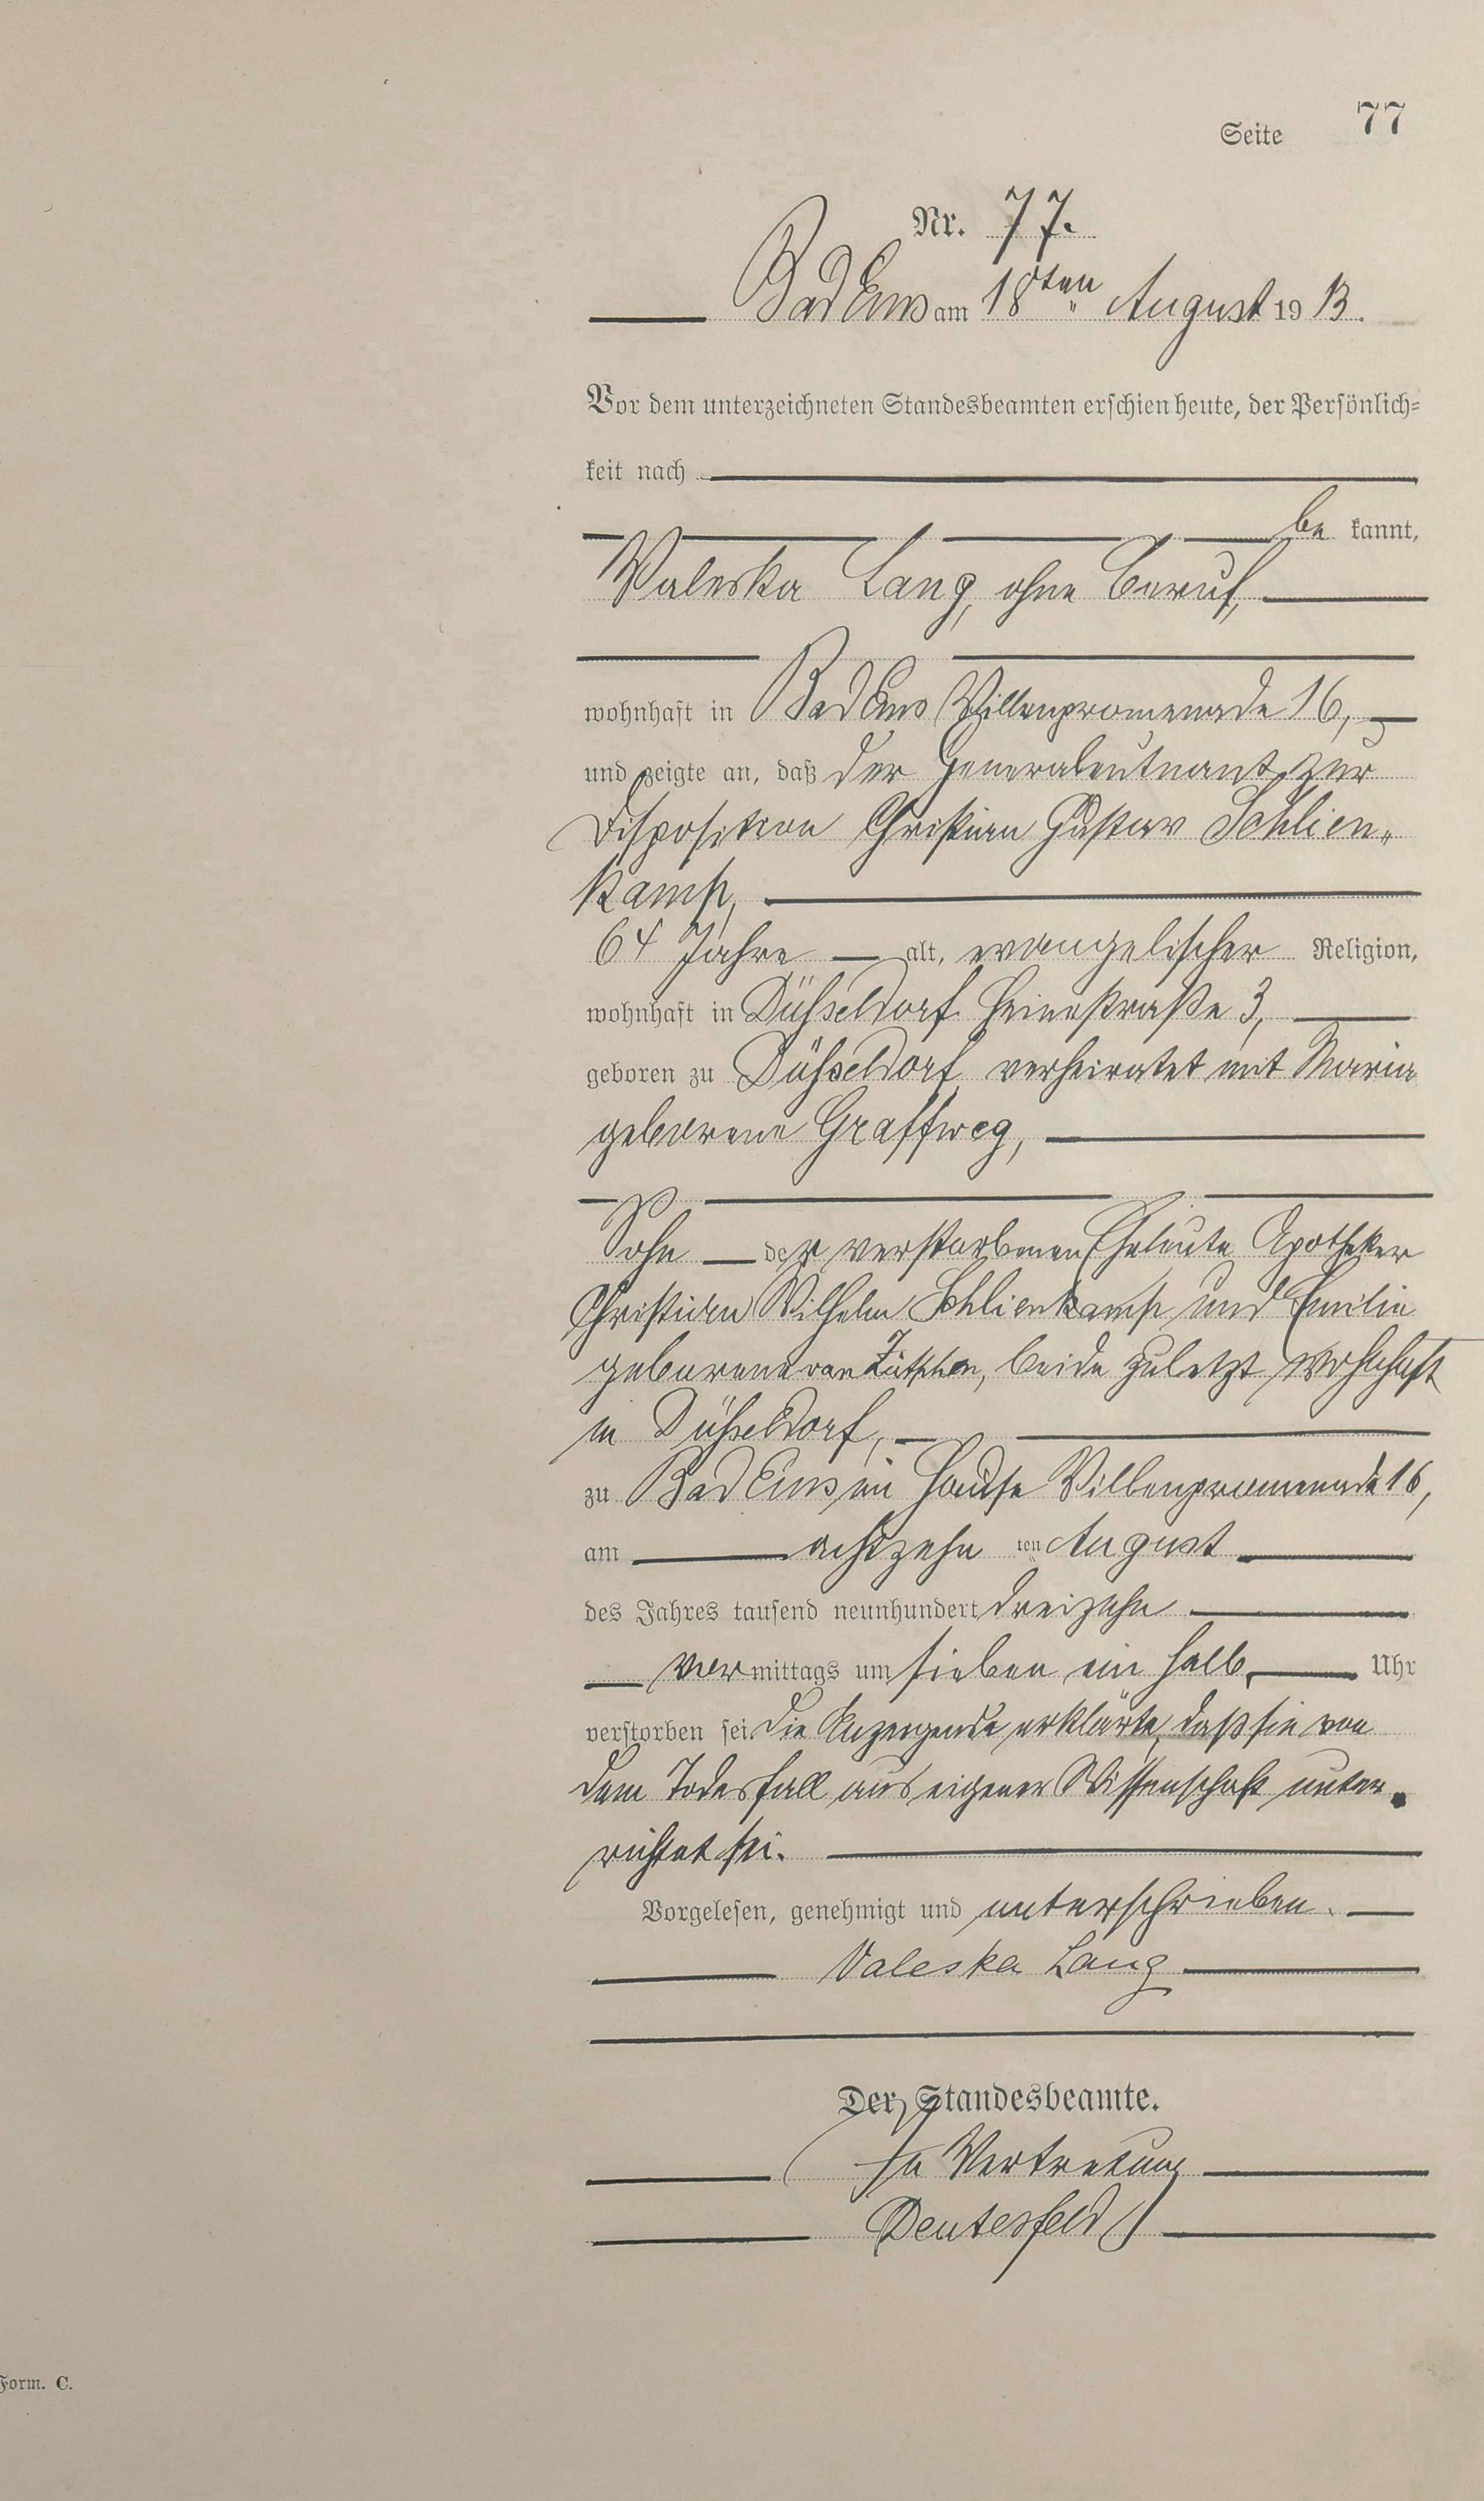 Seite 77
Nr. 77.
Bad Ems am 18ten August 1913.
Vor dem unterzeichneten Standesbeamten erschien heute, der Persönlich=
keit nach
be kannt,
Valeska Lang, ohne Beruf,
wohnhaft in Bad Ems Villenpromenade 16,
und zeigte an, daß der Generalleutnant zur
Disposition Christian Gustav Schlien„
kamp,
64 Jahre alt, evangelischer Religion,
wohnhaft in Düsseldorf Heinestraße 3,
geboren zu Düsseldorf verheiratet mit Maria
geborene Graffweg,
Sohn der verstorbenen Eheleute Apotheker
Christian Wilhelm Schlienkamp und Emilie
geborene van Zütphen, beide zuletzt wohnhaft
in Düsseldorf,
zu Bad Ems im Hause Villenpromenade 16,
am achtzehn ten August
des Jahres tausend neunhundert dreizehn
vormittags um sieben ein halb Uhr
verstorben sei. Die Anzeigende erklärte, daß sie von
dem Todesfall aus eigener Wissenschaft unter„
richtet sei.
Vorgelesen, genehmigt und unterschrieben.
Valeska Lang
Der Standesbeamte.
In Vertretung
Deutesfeld
Form. C.